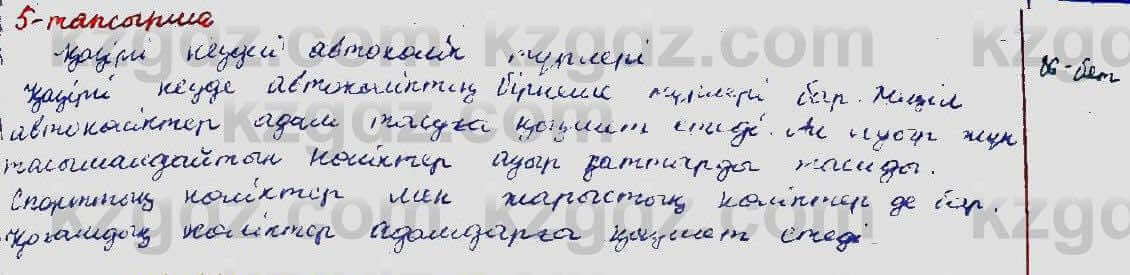 5-тапсырма
Қазіргі кездегі автокөлік түрлері
Қазіргі кезде автокөліктің бірнеше түрлері бар. Жеңіл
86-бет
автокөліктер адам тасуға қызмет етеді. Ал ауыр жүк
тасымалдайтын көліктер ауыр заттарды тасиды.
Спорттық көліктер мен жарыстық көліктер де бар.
Қоғамдық көліктер адамдарға қызмет етеді
kzgdz.com